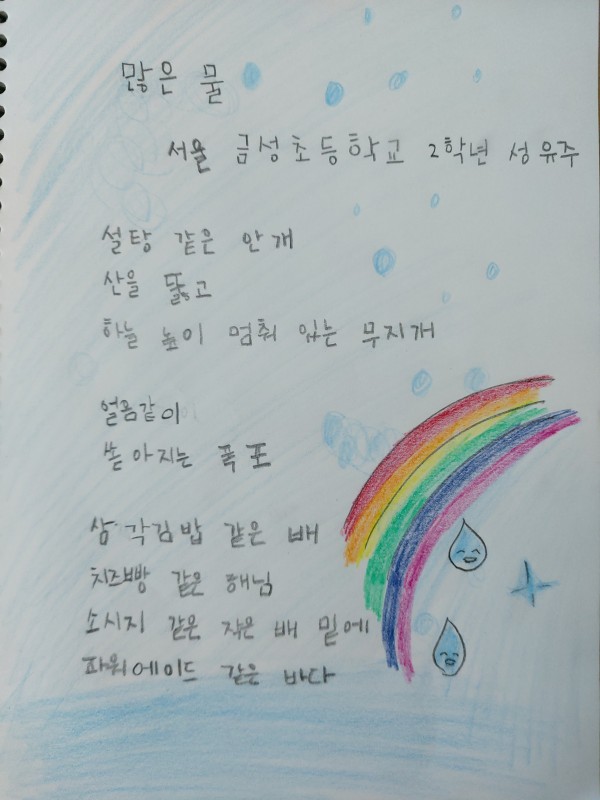 많은 물
서울 금성초등학교 2학년 성유주
설탕 같은 안개
산을 뚫고
하늘 높이 멈춰 있는 무지개
얼음같이
쏟아지는 폭포
삼각김밥 같은 배
치즈빵 같은 해님
소시지 같은 작은 배 밑에
파워에이드 같은 바다